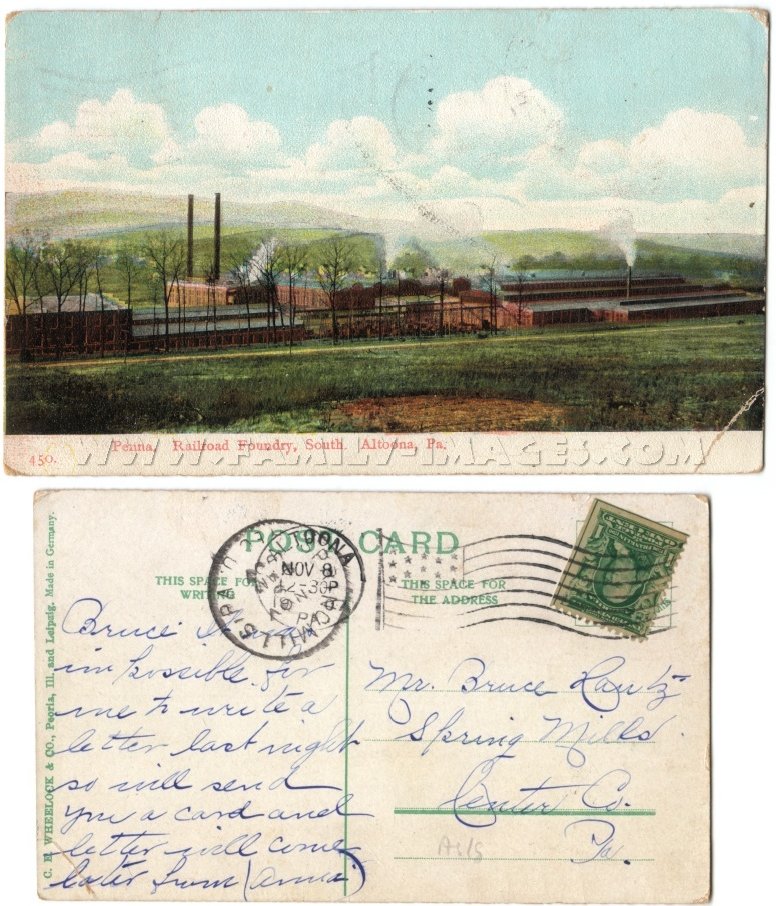 450.
Penna. Railroad Foundry, South Altoona, Pa.
WWW.FAMILY-IMAGES.COM
POST CARD
THIS SPACE FOR
THIS SPACE FOR
THE ADDRESS
ALTOONA
NOV 8
PA
C. E. WHEELOCK & CO., Peoria, Ill. and Leipzig. Made in Germany.
Bruce
impossible for
me to write a
letter last night
so will send
you a card and
letter will come
later from (Anna)
Mr. Bruce Lantz
Spring Mills.
Center Co.
Pa.